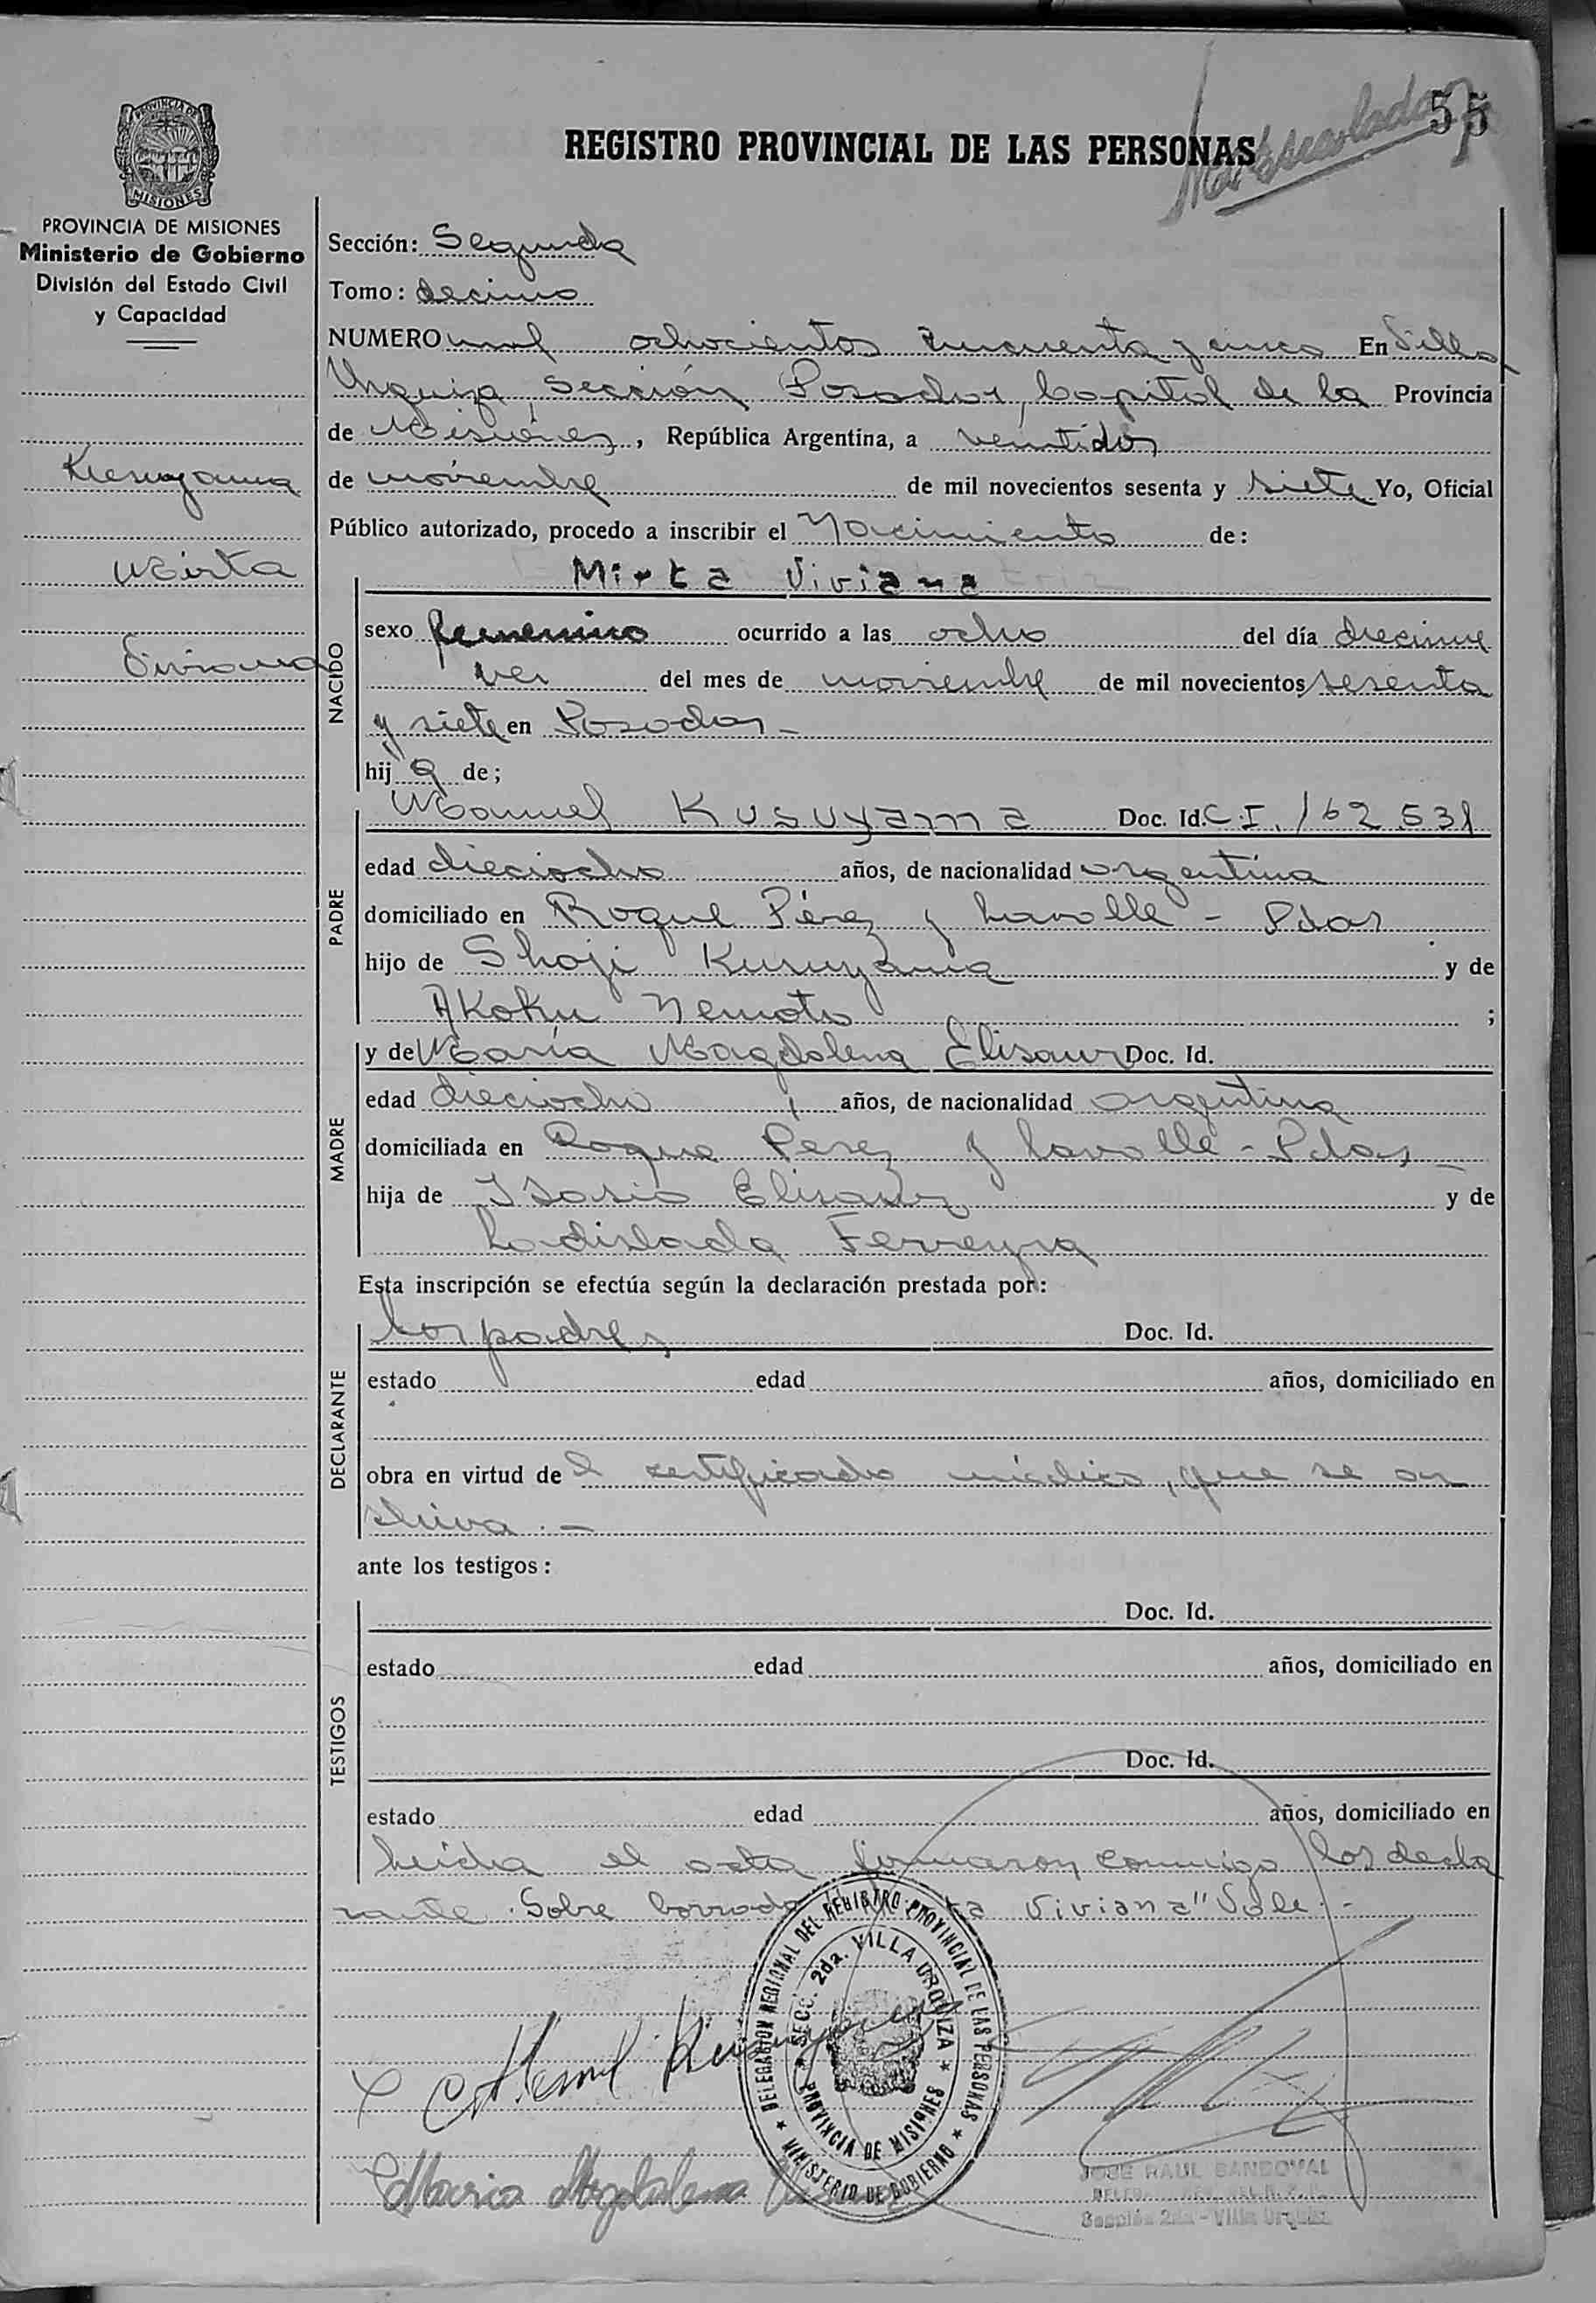 55
PROVINCIA DE
MISIONES
REGISTRO PROVINCIAL DE LAS PERSONAS
PROVINCIA DE MISIONES
Ministerio de Gobierno
División del Estado Civil
y Capacidad
Kusuyama
Mirta
Viviana
Sección: Segunda
Tomo: decimo
NUMERO mil ochocientos cincuenta y cinco En Villa
Urquiza, Sección Posadas, Capital de la Provincia
de Misiones, República Argentina, a veintidós
de noviembre de mil novecientos sesenta y siete Yo, Oficial
Público autorizado, procedo a inscribir el Nacimiento de:
Mirta Viviana
NACIDO
sexo femenino ocurrido a las ocho del día diecinue
ve del mes de noviembre de mil novecientos sesenta
y siete en Posadas -
hij a de;
PADRE
Manuel Kusuyama Doc. Id. C.I. 162.531
edad dieciocho años, de nacionalidad argentina
domiciliado en Roque Pérez y Lavalle - Pdas
hijo de Shoji Kusuyama y de
Akoku Nemoto ;
MADRE
y de María Magdalena Elisaur Doc. Id.
edad dieciocho años, de nacionalidad argentina
domiciliada en Roque Perez y Lavalle - Pdas -
hija de Elisaur y de
Ladislada Ferreyra
Esta inscripción se efectúa según la declaración prestada por:
DECLARANTE
los padres Doc. Id.
estado edad años, domiciliado en
obra en virtud de l certificado médico, que se ar
chiva. -
ante los testigos:
TESTIGOS
Doc. Id.
estado edad años, domiciliado en
Doc. Id.
estado edad años, domiciliado en
leída el acta firmaron conmigo los decla
rante. Sobre borrado ta Viviana" Vale. -
DELEGACION REGIONAL DEL REGISTRO PROVINCIAL DE LAS PERSONAS
SECC. 2da. VILLA URQUIZA
PROVINCIA DE MISIONES
MINISTERIO DE GOBIERNO
Manuel Kusuyama
Maria Magdalena
JOSE RAUL SANDOVAL
Sección 2da - Villa Urquiza